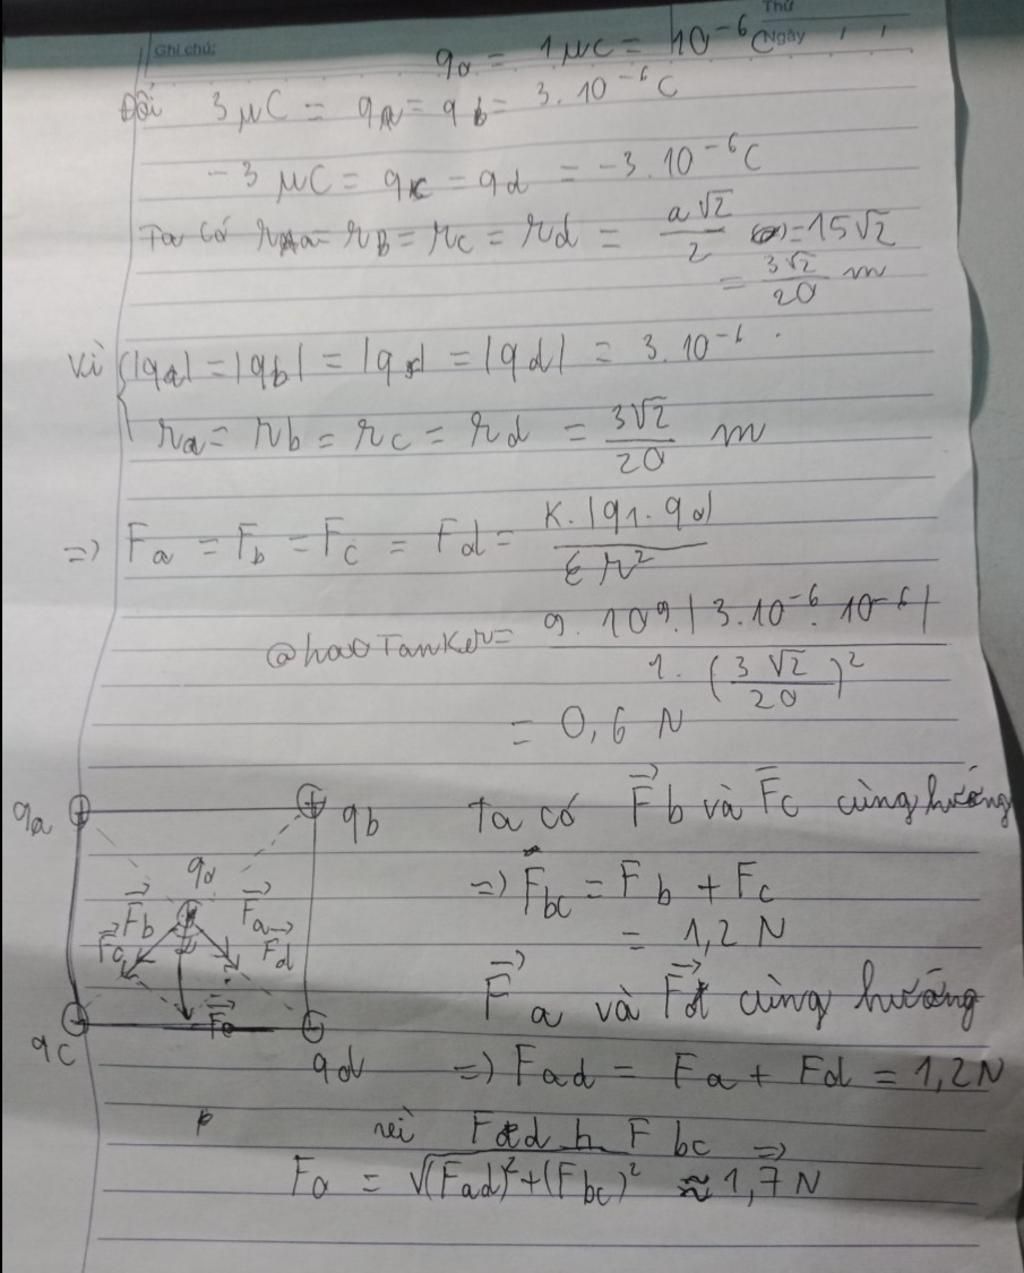 Thứ
Ghi chú:
Ngày
q₀ = 1μC = 10⁻⁶C
Đổi 3μC = qₐ = q_b = 3.10⁻⁶C
-3 μC = q_c = q_d = -3.10⁻⁶C
Ta có rₐ = r_B = r_C = r_d = a√2/2 = 15√2
= 3√2/20 m
Vì {|qₐ| = |q_b| = |q_c| = |q_d| = 3.10⁻⁶.
rₐ = r_b = r_c = r_d = 3√2/20 m
=> Fₐ = F_b = F_c = F_d = K.|q₁.q₀|/εr²
@haoTanker = 9.10⁹.|3.10⁻⁶.10⁻⁶|/1.(3√2/20)²
= 0,6 N
qₐ
q_b
q₀
F⃗_b
F⃗ₐ
F⃗_c
F⃗_d
F⃗₀
q_c
q_d
Ta có F⃗_b và F⃗_c cùng hướng
=> F_bc = F_b + F_c
= 1,2 N
F⃗ₐ và F⃗_d cùng hướng
=> F_ad = Fₐ + F_d = 1,2N
F_ad ⊥ F_bc =>
F₀ = √(F_ad)² + (F_bc)² ≈ 1,7 N